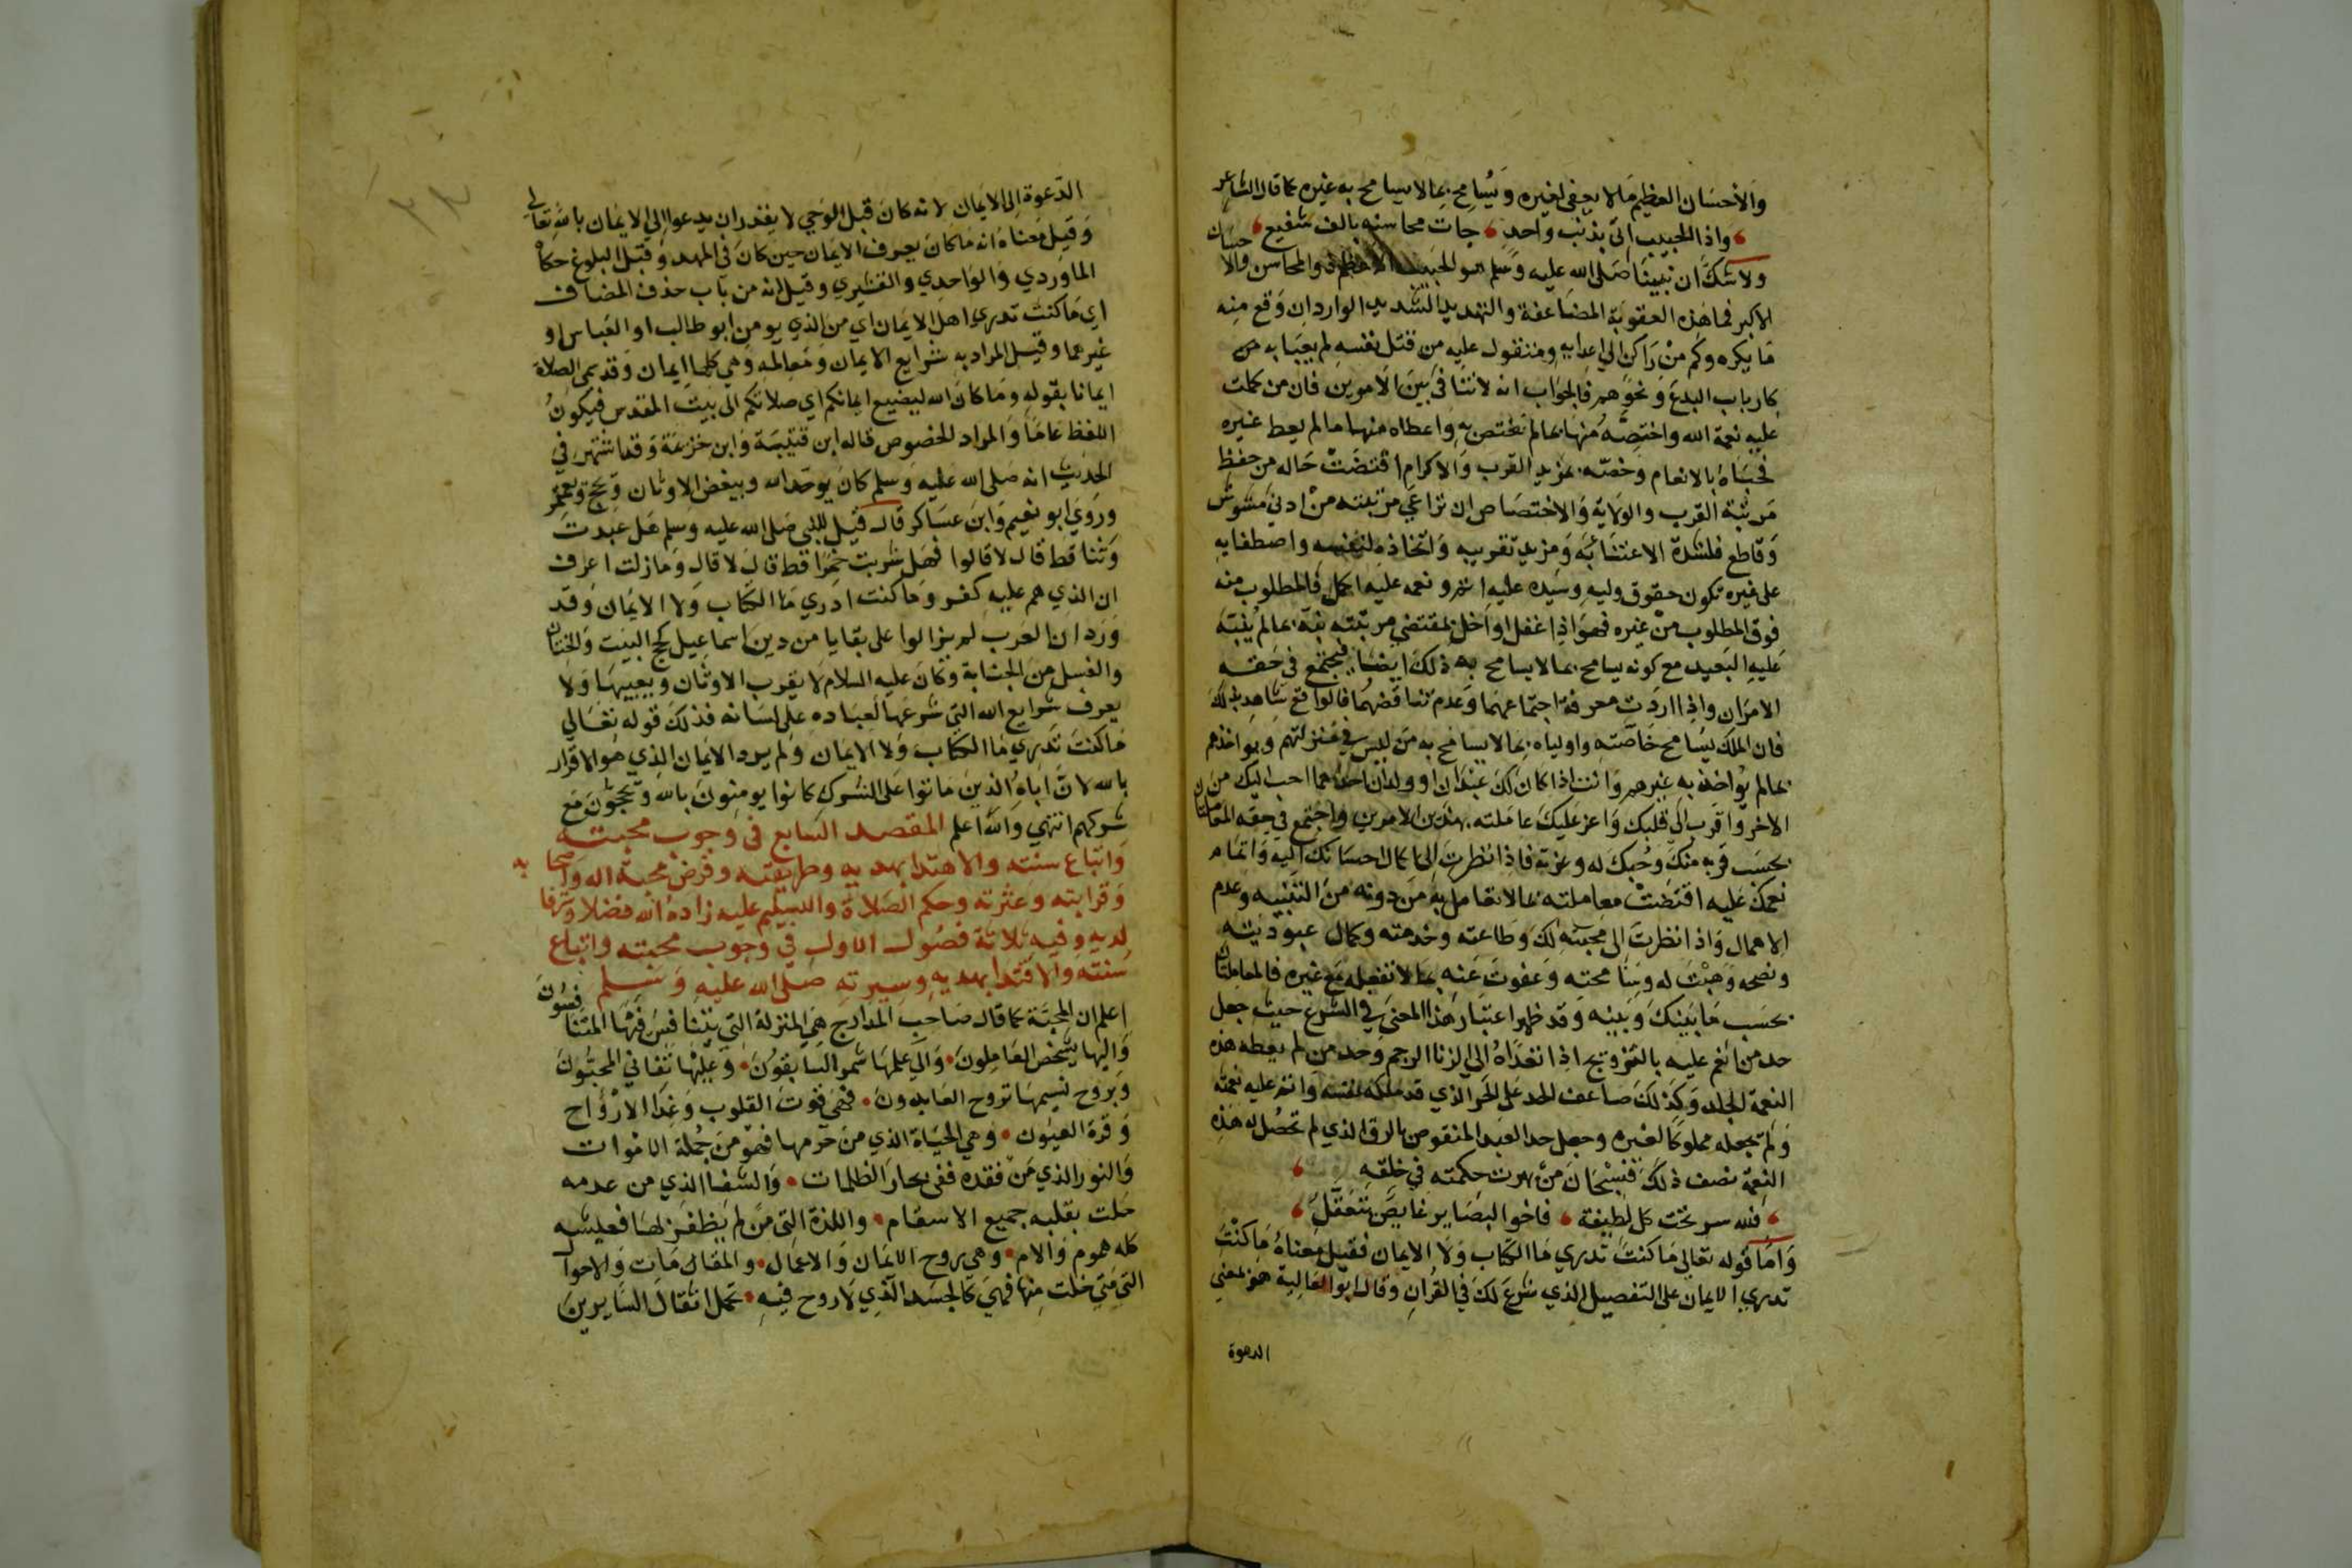 والاحسان العظيم ما لا يعفى لغيره ويسامح بما لا يسامح به غيره كما قال الشاعر
واذا الحبيب اتى بذنب واحد جات محاسنه بالف شفيع
ولا شك ان نبينا صلى الله عليه وسلم هو الحبيب الاعظم ذو المحاسن والا حسان
الاكبر فما هذه العقوبة المضاعفة والتهديد الشديد الوارد ان وقع منه
ما يكره وكم من راكن الى اعدايه ومتقول عليه من قتل نفسه لم يعبا به
كارباب البدع ونحوهم فالجواب انه لا تنافى بين الامرين فان من كملت
عليه نعمة الله واختصه منها بما لم يختص به واعطاه منها ما لم يعط غيره
فحباه بالانعام وخصه بمزيد القرب والاكرام اقتضت حاله من حفظ
مرتبة القرب والولاية والاختصاص ان تراعي مرتبته من ادنى مشوش
وقاطع فلشدة الاعتناء به ومزيد تقريبه واتخاذه لنفسه واصطفايه
على غيره تكون حقوق وليه وسيده عليه اتم ونعمه عليه اكمل فالمطلوب منه
فوق المطلوب من غيره فهو اذا غفل او اخل بمقتضى مرتبته نبه بما لم ينبه
عليه البعيد مع كونه يسامح بما لا يسامح به ذلك ايضا فيجتمع في حقه
الامران واذا اردت معرفة اجتماعهما وعدم تناقضهما فالواقع شاهد بذلك
فان الملك يسامح خاصته واولياه بما لا يسامح به من ليس في منزلتهم ويواخذهم
بما لم يواخذ به غيرهم وانت اذا كان لك عبدان او ولدان احدهما احب اليك من
الاخر واقرب الى قلبك واعز عليك عاملته بهذين الامرين واجتمع في حقه المعاملتان
بحسب قربه منك وحبك له وعزته فاذا نظرت الى كمال احسانك اليه واتمام
نعمتك عليه اقتضت معاملته بما لا تعامل به من دونه من التنبيه وعدم
الاهمال واذا نظرت الى محبته لك وطاعته وخدمته وكمال عبوديته
ونصحه وهبت له وسامحته وعفوت عنه بما لا تفعله مع غيره فالمعاملتان
بحسب ما بينك وبينه وقد ظهر اعتبار هذا المعنى في الشرع حيث جعل
حد من انعم عليه بالتزويج اذا تعداه الى الزنا الرجم وحد من لم يعطه هذه
النعمة الجلد وكذلك ضاعف الحد على الحر الذي قد ملكه نفسه واتم عليه نعمته
ولم يجعله مملوكا لغيره وجعل حد العبد المنقوص بالرق الذي لم تحصل له هذه
النعمة نصف ذلك فسبحان من بهرت حكمته في خلقه
فلله سر تحت كل لطيفة فاخو البصاير غايص يتعقل
واما قوله تعالى ما كنت تدري ما الكتاب ولا الايمان فقيل معناه ما كنت
تدري الايمان على التفصيل الذي شرع لك في القران وقال ابو العالية هو بمعني
الدعوة
الدعوة الى الايمان لانه كان قبل الوحي لا يقدر ان يدعوا الى الايمان بالله تعالى
وقيل معناه انه ما كان يعرف الايمان حين كان في المهد وقبل البلوغ حكاه
الماوردي والواحدي والقشيري وقيل انه من باب حذف المضاف
اي ما كنت تدري اهل الايمان اي من الذي يومن ابو طالب او العباس او
غيرهما وقيل المراد به شرايع الايمان ومعالمه وهي كلها ايمان وقد سمى الصلاة
ايمانا بقوله وما كان الله ليضيع ايمانكم اي صلاتكم الى بيت المقدس فيكون
اللفظ عاما والمراد الخصوص قاله ابن قتيبة وابن خزيمة وقد اشتهر في
الحديث انه صلى الله عليه وسلم كان يوحد الله ويبغض الاوثان ويحج ويعتمر
وروي ابو نعيم وابن عساكر قال قيل للنبي صلى الله عليه وسلم هل عبدت
وثنا قط قال لا قالوا فهل شربت خمرا قط قال لا قال وما زلت اعرف
ان الذي هم عليه كفر وما كنت ادري ما الكتاب ولا الايمان وقد
ورد ان العرب لم يزالوا على بقايا من دين اسماعيل كحج البيت والختان
والغسل من الجنابة وكان عليه السلام لا يقرب الاوثان ويعيبها ولا
يعرف شرايع الله التي شرعها لعباده على لسانه فذلك قوله تعالى
ما كنت تدري ما الكتاب ولا الايمان ولم يرد الايمان الذي هو الاقرار
بالله لان اباه الذين ماتوا على الشرك كانوا يومنون بالله ويحجون مع
شركهم انتهي والله اعلم المقصد السابع في وجوب محبته
واتباع سنته والاهتدا بهديه وطريقته وفرض محبة اله واصحابه
وقرابته وعثرته وحكم الصلاة والتسليم عليه زاده الله فضلا وشرفا
لديه وفيه ثلاثة فصول الاول في وجوب محبته واتباع
سنته والاقتدا بهديه وسيرته صلى الله عليه وسلم
اعلم ان المحبة كما قال صاحب المدارج هي المنزلة التي يتنافس فيها المتنافسون
واليها يشخص العاملون والي علمها شمر السابقون وعليها تفاني المحبون
وبروح نسيمها تروح العابدون فهي قوت القلوب وغذا الارواح
وقرة العيون وهي الحياة الذي من حرمها فهو من جملة الاموات
والنور الذي من فقده ففي بحار الظلمات والشفا الذي من عدمه
حلت بقلبه جميع الاسقام واللذة التي من لم يظفر بها فعيشه
كله هموم والام وهي روح الايمان والاعمال والمقامات والاحوال
التي متى خلت منها فهي كالجسد الذي لا روح فيه تحمل اثقال السايرين